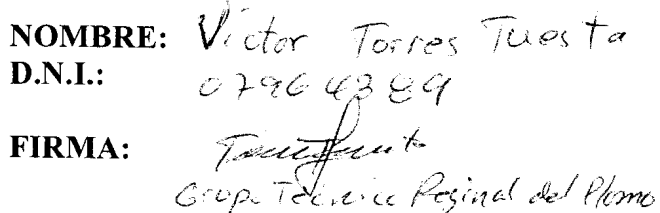 NOMBRE: Victor Torres Tuesta
D.N.I.: 07964389
FIRMA:
Grupo Técnico Reginal del Plomo